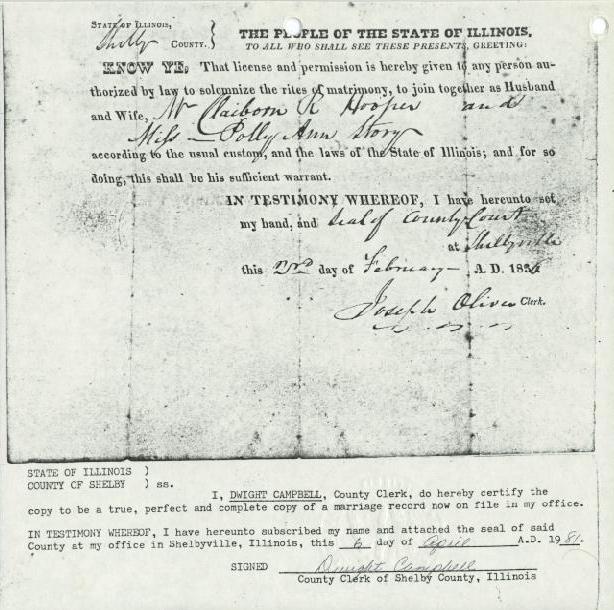 STATE OF ILLINOIS,
Shelby COUNTY.}
THE PEOPLE OF THE STATE OF ILLINOIS.
TO ALL WHO SHALL SEE THESE PRESENTS, GREETING:
KNOW YE, That license and permission is hereby given to any person au-
thorized by law to solemnize the rites of matrimony, to join together as Husband
and Wife, Mr Claiborn R Hooper and
Miss Polly Ann Story
according to the usual custom, and the laws of the State of Illinois; and for so
doing, this shall be his sufficient warrant.
IN TESTIMONY WHEREOF, I have hereunto set
my hand, and seal of County Court
at Shelbyville
this 22nd day of February A. D. 183
Joseph Oliver Clerk.
STATE OF ILLINOIS )
COUNTY OF SHELBY ) ss.
I, DWIGHT CAMPBELL, County Clerk, do hereby certify the
copy to be a true, perfect and complete copy of a marriage record now on file in my office.
IN TESTIMONY WHEREOF, I have hereunto subscribed my name and attached the seal of said
County at my office in Shelbyville, Illinois, this 6 day of April A.D. 1981.
SIGNED Dwight Campbell
County Clerk of Shelby County, Illinois